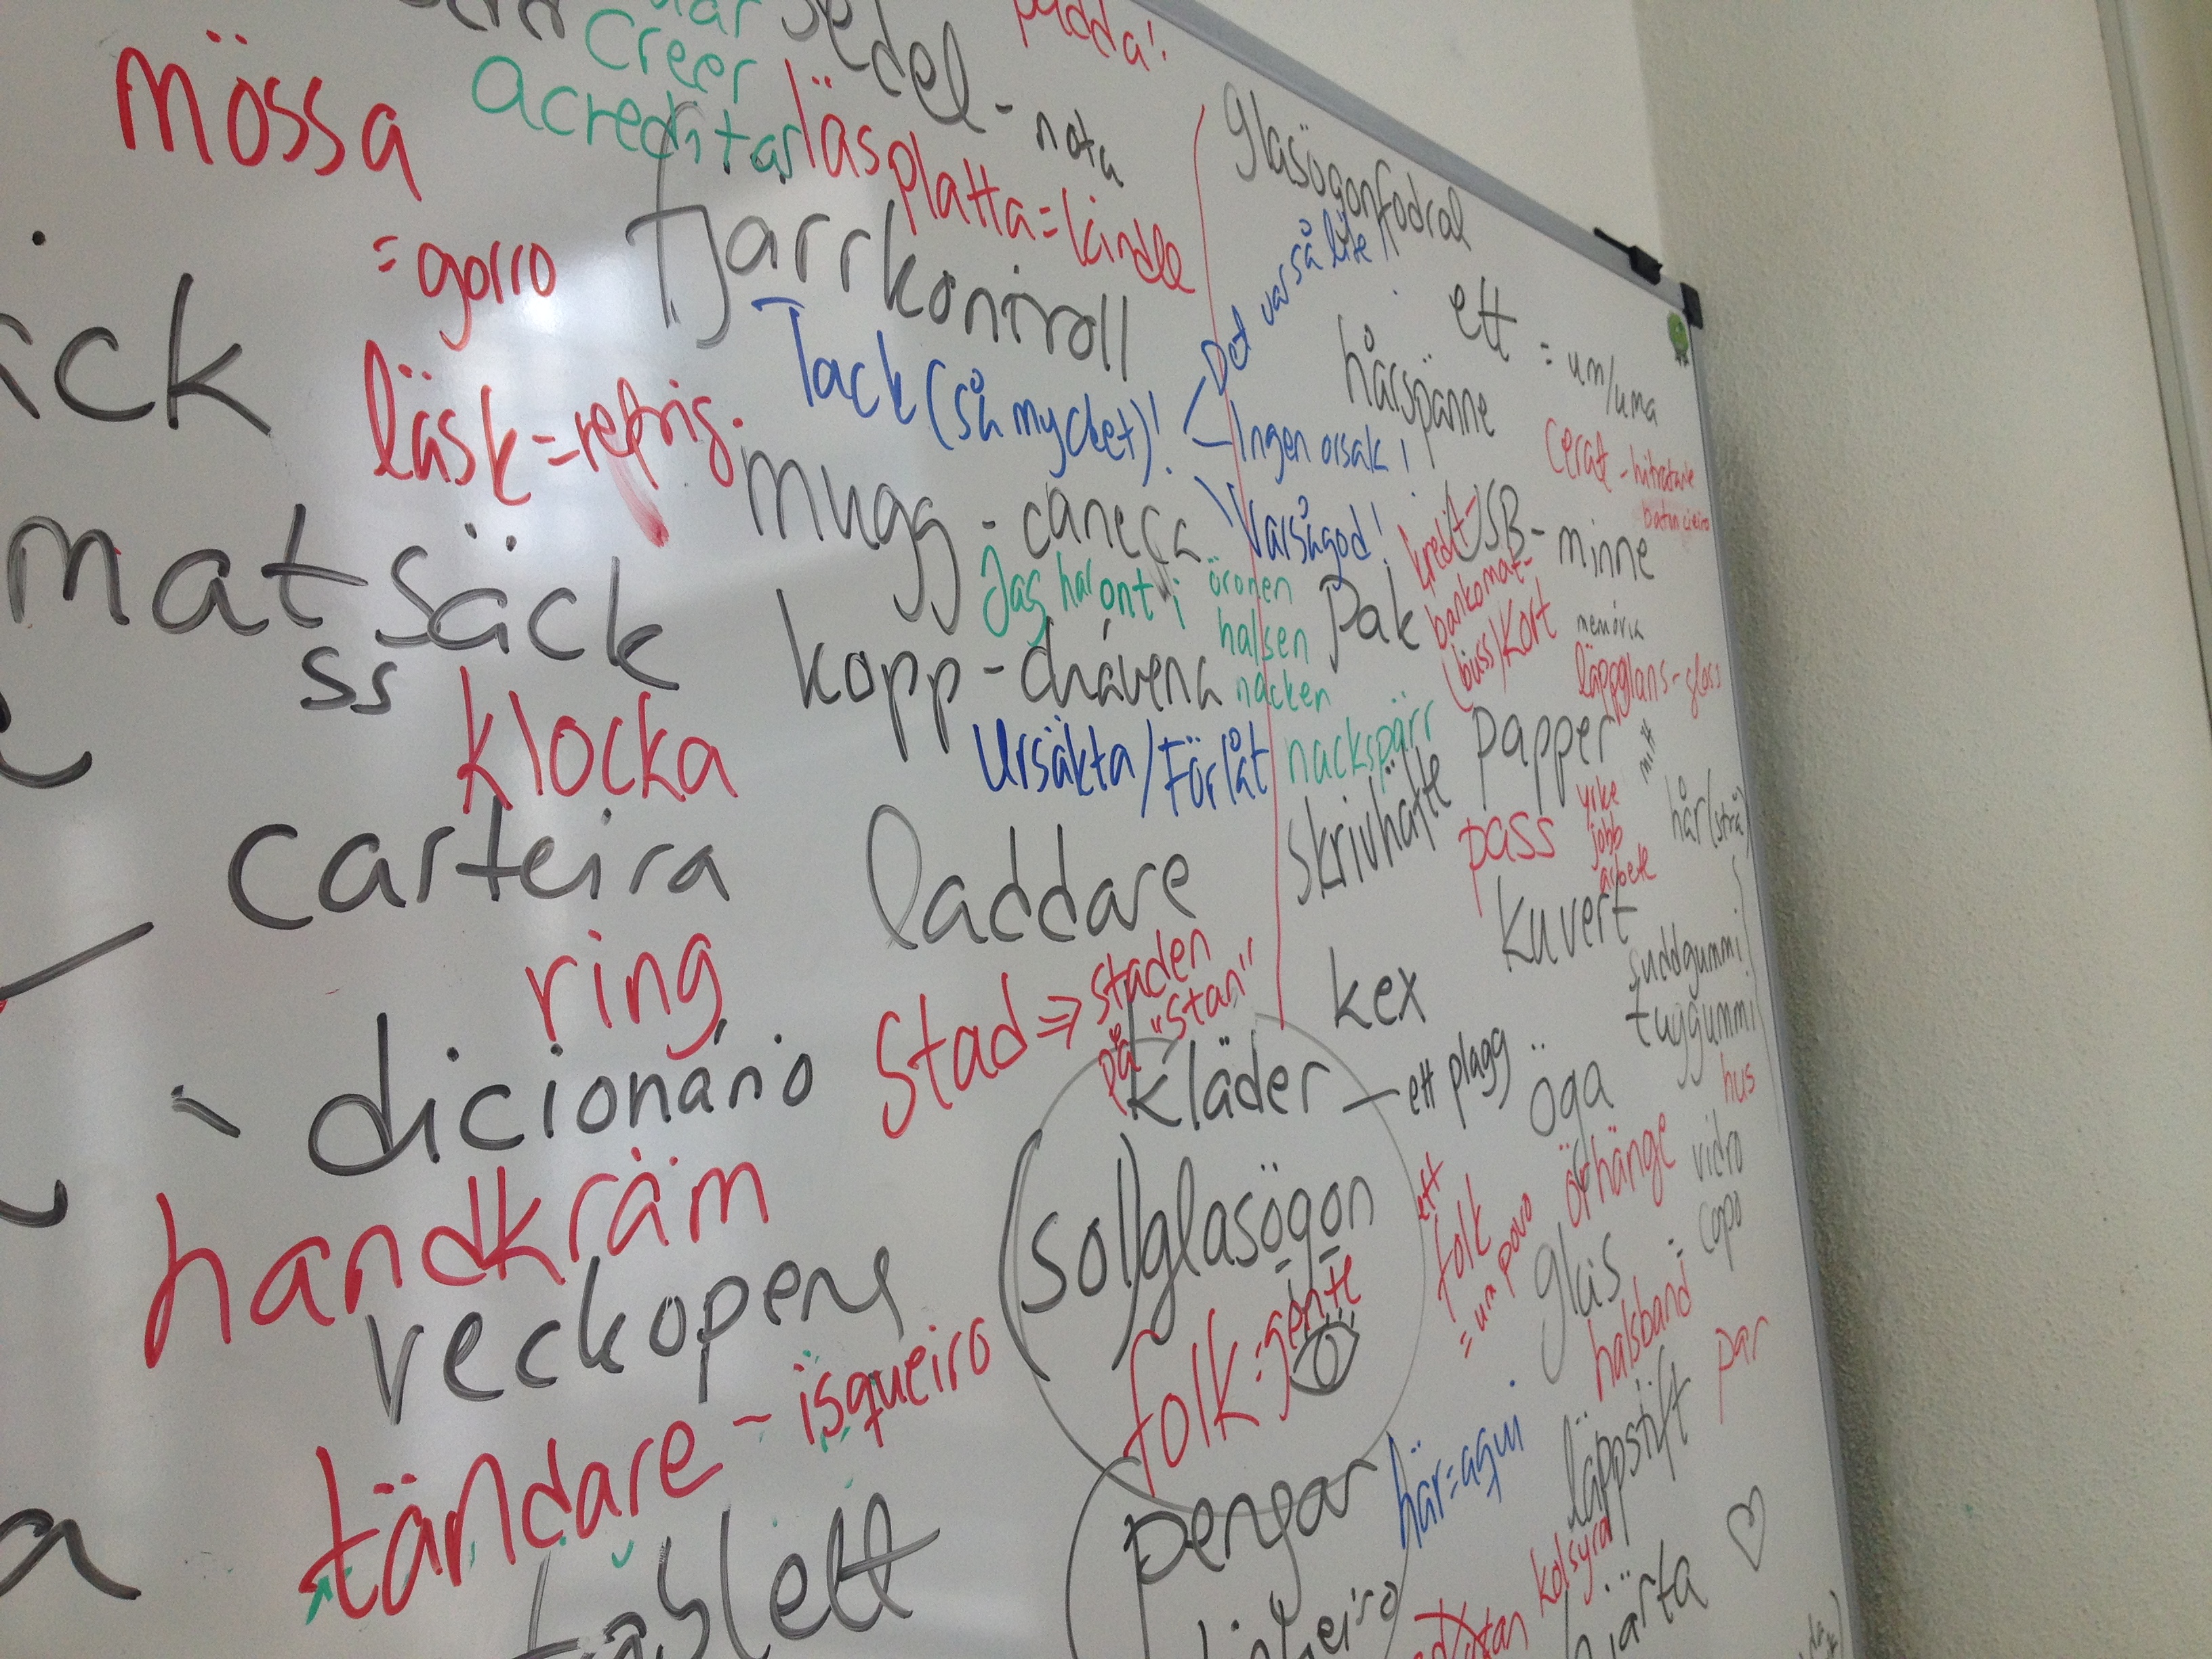 sedel - nota
mössa
creer
acreditar
läsplatta = kindle
= gorro
fjärrkontroll
läsk = refrig.
Tack (så mycket)!
Det var så lite!
Ingen orsak!
Varsågod!
mugg - caneca
matsäck
ss
Jag har ont i öronen
halsen
nacken
kopp - chávena
klocka
Ursäkta / Förlåt
nackspärr
carteira
laddare
ring
stad ⇒ staden
på "stan"
dicionário
kläder - ett plagg
handkräm
(sol)glasögon
veckopeng
folk = gente
tändare - isqueiro
pengar
tablett
glasögonfodral
ett = um/uma
hårspänne
cerat - hitratante
USB-minne
memória
kredit-
bankomat-
(buss)kort
pak
läppglans - gloss
papper
mitt
skrivhäfte
pass
yrke
jobb
arbete
hår(strå)
kuvert
suddgummi
tuggummi
kex
öga
hus
örhänge
vidro
ett
folk
= um povo
glas
= copo
halsband
par
här = aqui
läppstift
kolsyra
hjärta